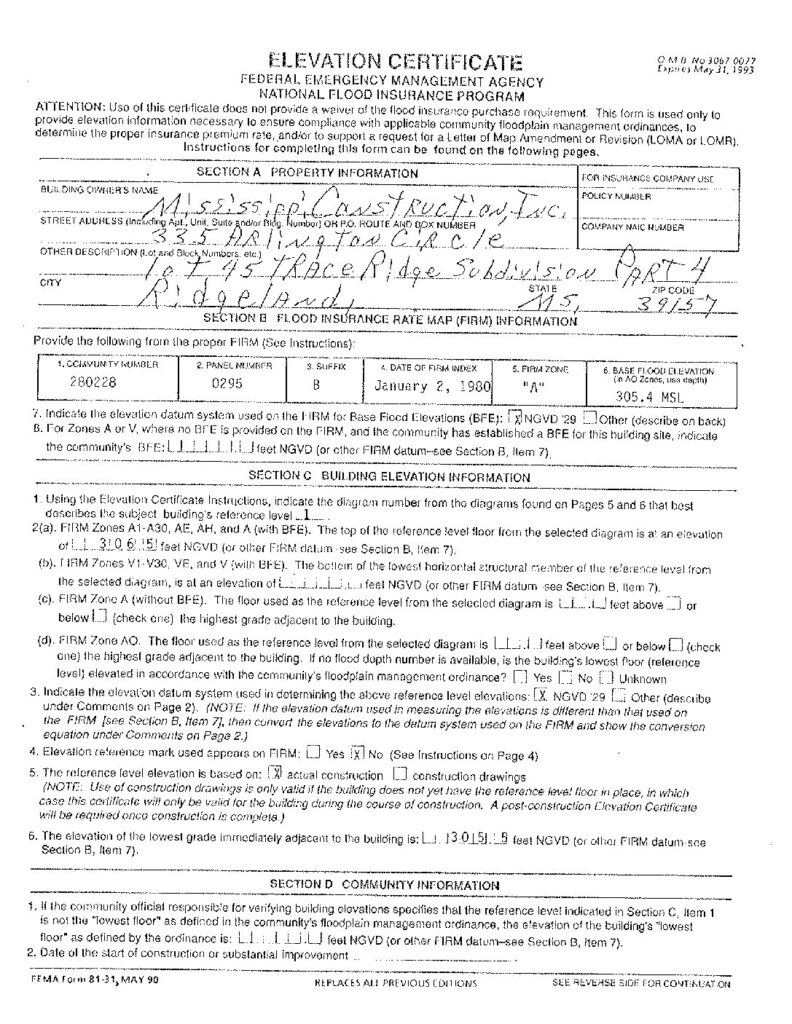 ELEVATION CERTIFICATE
O.M.B. No 3067-0077
Expires May 31, 1993
FEDERAL EMERGENCY MANAGEMENT AGENCY
NATIONAL FLOOD INSURANCE PROGRAM
ATTENTION: Use of this certificate does not provide a waiver of the flood insurance purchase requirement. This form is used only to
provide elevation information necessary to ensure compliance with applicable community floodplain management ordinances, to
determine the proper insurance premium rate, and/or to support a request for a Letter of Map Amendment or Revision (LOMA or LOMR).
Instructions for completing this form can be found on the following pages.
SECTION A PROPERTY INFORMATION
FOR INSURANCE COMPANY USE
BUILDING OWNER'S NAME
POLICY NUMBER
Mississippi Construction, Inc.
STREET ADDRESS (Including Apt., Unit, Suite and/or Bldg. Number) OR P.O. ROUTE AND BOX NUMBER
COMPANY NAIC NUMBER
335 Arlington Circle
OTHER DESCRIPTION (Lot and Block Numbers, etc.)
Lot 45 Trace Ridge Subdivision Part 4
CITY
STATE
ZIP CODE
Ridgeland, MS, 39157
SECTION B FLOOD INSURANCE RATE MAP (FIRM) INFORMATION
Provide the following from the proper FIRM (See Instructions):
1. COMMUNITY NUMBER 2. PANEL NUMBER 3. SUFFIX 4. DATE OF FIRM INDEX 5. FIRM ZONE 6. BASE FLOOD ELEVATION
(in AO Zones, use depth)
280228 0295 B January 2, 1980 "A" 305.4 MSL
7. Indicate the elevation datum system used on the FIRM for Base Flood Elevations (BFE): X NGVD '29 Other (describe on back)
8. For Zones A or V, where no BFE is provided on the FIRM, and the community has established a BFE for this building site, indicate
the community's BFE: feet NGVD (or other FIRM datum–see Section B, Item 7).
SECTION C BUILDING ELEVATION INFORMATION
1. Using the Elevation Certificate Instructions, indicate the diagram number from the diagrams found on Pages 5 and 6 that best
describes the subject building's reference level 1
2(a). FIRM Zones A1-A30, AE, AH, and A (with BFE). The top of the reference level floor from the selected diagram is at an elevation
of 306.5 feet NGVD (or other FIRM datum–see Section B, Item 7).
(b). FIRM Zones V1-V30, VE, and V (with BFE). The bottom of the lowest horizontal structural member of the reference level from
the selected diagram, is at an elevation of feet NGVD (or other FIRM datum–see Section B, Item 7).
(c). FIRM Zone A (without BFE). The floor used as the reference level from the selected diagram is feet above or
below (check one) the highest grade adjacent to the building.
(d). FIRM Zone AO. The floor used as the reference level from the selected diagram is feet above or below (check
one) the highest grade adjacent to the building. If no flood depth number is available, is the building's lowest floor (reference
level) elevated in accordance with the community's floodplain management ordinance? Yes No Unknown
3. Indicate the elevation datum system used in determining the above reference level elevations: X NGVD '29 Other (describe
under Comments on Page 2). (NOTE: If the elevation datum used in measuring the elevations is different than that used on
the FIRM [see Section B, Item 7], then convert the elevations to the datum system used on the FIRM and show the conversion
equation under Comments on Page 2.)
4. Elevation reference mark used appears on FIRM: Yes X No (See Instructions on Page 4)
5. The reference level elevation is based on: X actual construction construction drawings
(NOTE: Use of construction drawings is only valid if the building does not yet have the reference level floor in place, in which
case this certificate will only be valid for the building during the course of construction. A post-construction Elevation Certificate
will be required once construction is complete.)
6. The elevation of the lowest grade immediately adjacent to the building is: feet NGVD (or other FIRM datum-see
Section B, Item 7).
SECTION D COMMUNITY INFORMATION
1. If the community official responsible for verifying building elevations specifies that the reference level indicated in Section C, Item 1
is not the "lowest floor" as defined in the community's floodplain management ordinance, the elevation of the building's "lowest
floor" as defined by the ordinance is: feet NGVD (or other FIRM datum–see Section B, Item 7).
2. Date of the start of construction or substantial improvement
FEMA Form 81-31, MAY 90
REPLACES ALL PREVIOUS EDITIONS
SEE REVERSE SIDE FOR CONTINUATION